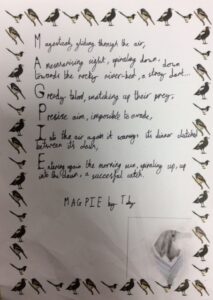 Majestically gliding through the air,
A mesmerising sight, spiraling down, down
towards the rocky river-bed, a stray dart...
Greedy talons, snatching up their prey;
Precise aim, impossible to evade,
Into the air again it swoops, its dinner clutched
between its claws,
Entering again the morning sun, spiraling up, up
into the dawn, a successful catch.
MAGPIE by Toby